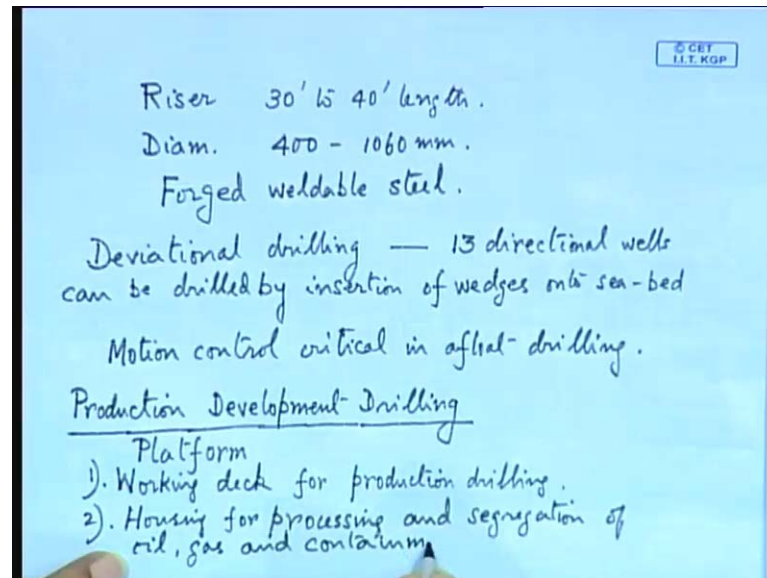 © CET
I.I.T. KGP
Riser 30' to 40' length.
Diam. 400 - 1060 mm.
Forged weldable steel.
Deviational drilling — 13 directional wells
can be drilled by insertion of wedges onto sea-bed
Motion control critical in afloat drilling.
Production Development Drilling
Platform
1). Working deck for production drilling.
2). Housing for processing and segregation of
oil, gas and contamm